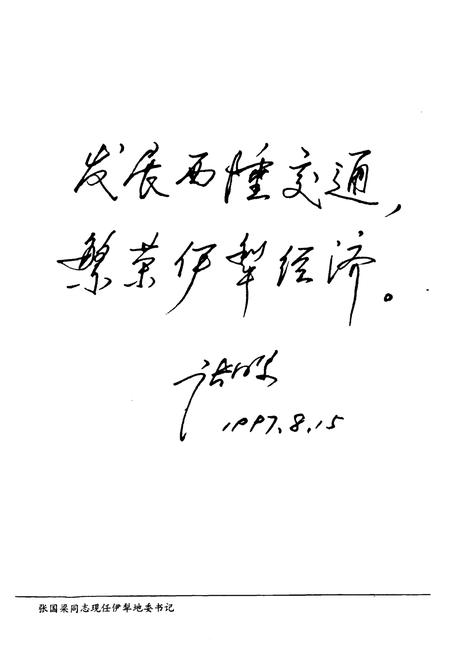 发展西陲交通，
繁荣伊犁经济。
1997.8.15
张国梁同志现任伊犁地委书记